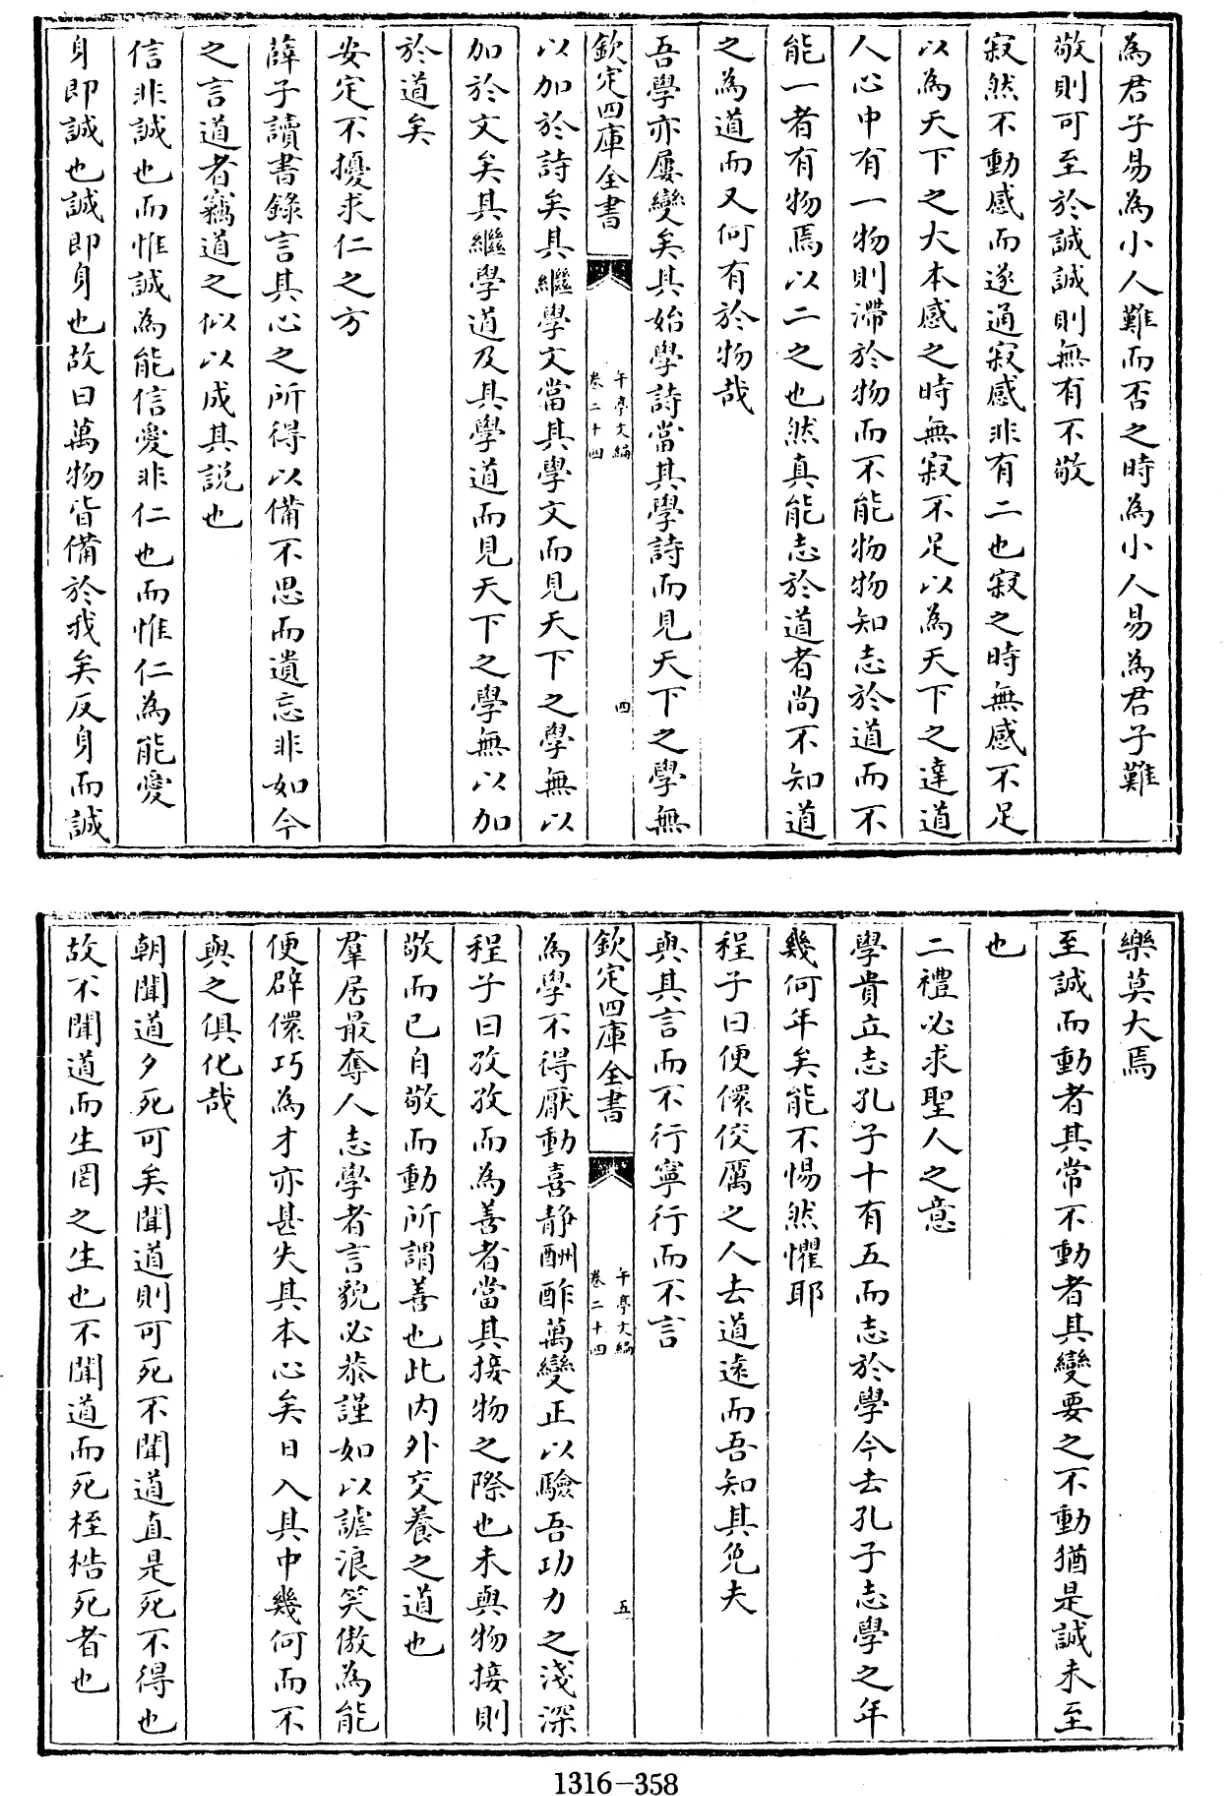 為君子易為小人難而否之時為小人易為君子難
敬則可至於誠誠則無有不敬
寂然不動感而遂通寂感非有二也寂之時無感不足
以為天下之大本感之時無寂不足以為天下之達道
人心中有一物則滯於物而不能物物知志於道而不
能一者有物焉以二之也然真能志於道者尚不知道
之為道而又何有於物哉
吾學亦屢變矣其始學詩當其學詩而見天下之學無
欽定四庫全書
午亭文編
卷二十四
四
以加於詩矣其繼學文當其學文而見天下之學無以
加於文矣其繼學道及其學道而見天下之學無以加
於道矣
安定不擾求仁之方
薛子讀書錄言其心之所得以備不思而遺忘非如今
之言道者竊道之似以成其說也
信非誠也而惟誠為能信愛非仁也而惟仁為能愛
身即誠也誠即身也故曰萬物皆備於我矣反身而誠
樂莫大焉
至誠而動者其常不動者其變要之不動猶是誠未至
也
二禮必求聖人之意
學貴立志孔子十有五而志於學今去孔子志學之年
幾何年矣能不惕然懼耶
程子曰便儇佼厲之人去道遠而吾知其免夫
與其言而不行寧行而不言
欽定四庫全書
午亭文編
卷二十四
五
為學不得厭動喜静酬酢萬變正以驗吾功力之淺深
程子曰孜孜而為善者當其接物之際也未與物接則
敬而已自敬而動所謂善也此内外交養之道也
羣居最奪人志學者言貌必恭謹如以謔浪笑傲為能
便辟儇巧為才亦甚失其本心矣日入其中幾何而不
與之俱化哉
朝聞道夕死可矣聞道則可死不聞道直是死不得也
故不聞道而生罔之生也不聞道而死桎梏死者也
1316-358